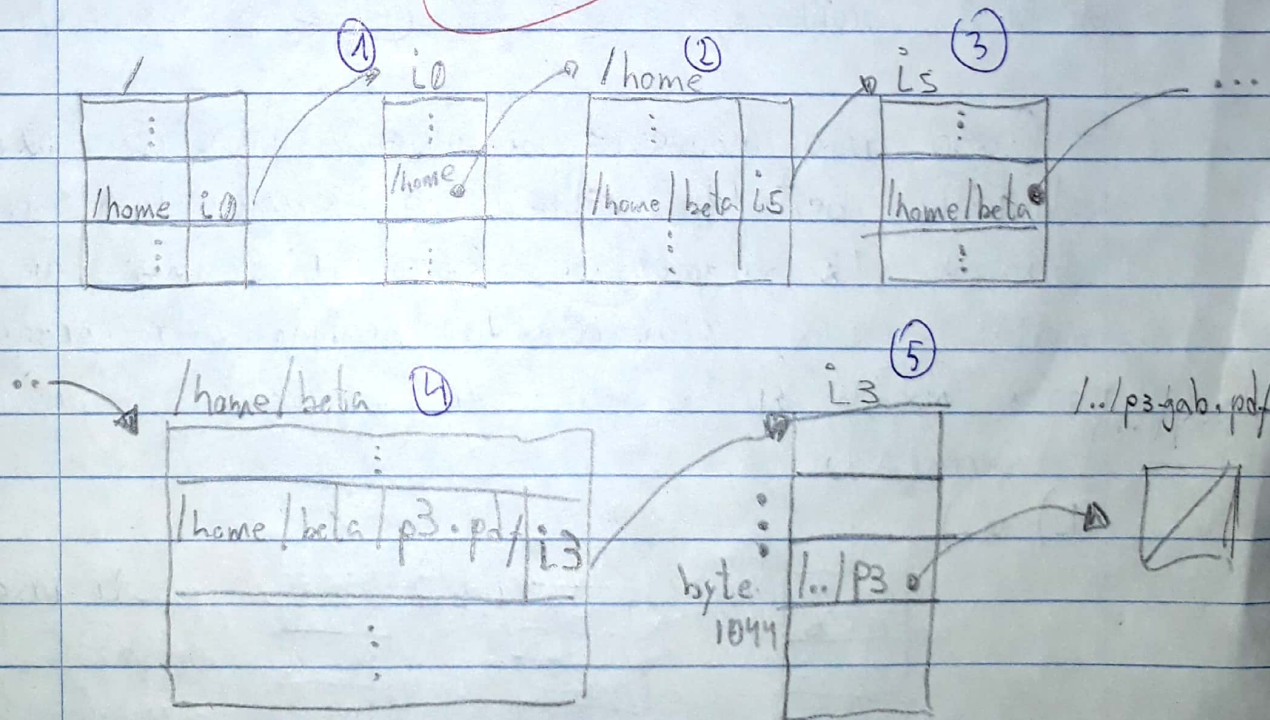 / ① i0 /home ② i5 ③
/home i0 /home /home/beta i5 /home/beta ...
.. /home/beta ④ i3 ⑤ /../p3-gab.pdf
/home/beta/p3.pdf i3
byte /../p3
1044